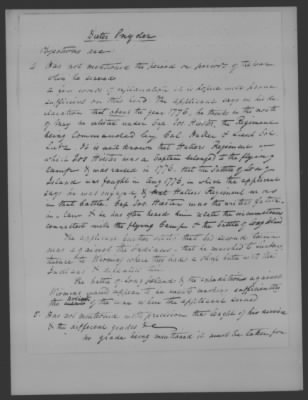 Peter Snyder
Objections are
1. Has not mentioned the period or periods of the war
when he served
a few words of explanation it is hoped will prove
sufficient on this head. The applicant says in his de-
claration that about the year 1776, he thinks in the month
of May he entered under Cap. Jos. Hiester, the Regiment
being Commanded by Col. Haller & Lieut Col.
Lutz. It is well known that Hallers Regiment in
which Jos Hiester was a Captain belonged to the flying
Camp & was raised in 1776. that the battle of Long
Island was fought in Aug 1776, in which the applicant
says he was engaged, & that Hallers Regiment was
in that battle. Cap. Jos. Hiester was the
in-law & he has often heard him relate the circumstances
connected with the flying Camp & the battle of Long Island
The applicant further states that his second term
was against the Indians - that he marched
to Wyoming where they had a battle with the
Indians & defeated them
The battle of Long Island & the expeditions against
Wyoming would appear to
the period of the war when the applicant served
2. Has not mentioned with precision the length of his service
& the different grades &c
No grade being mentioned it must be taken for